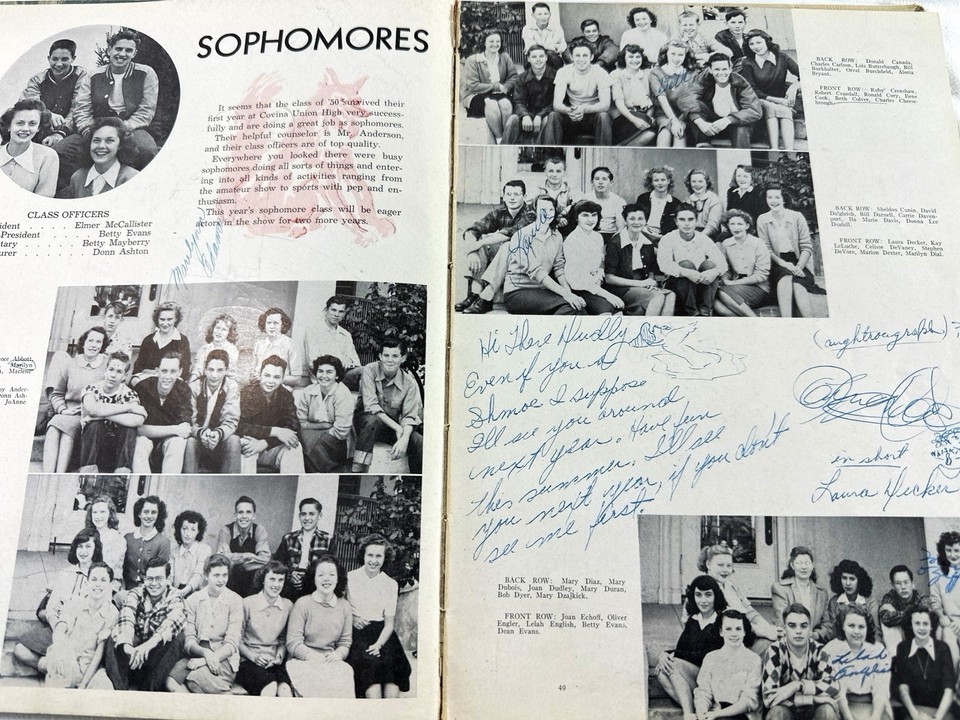 SOPHOMORES
It seems that the class of '50 survived their
first year at Covina Union High very success-
fully and are doing a great job as sophomores.
Their helpful counselor is Mr. Anderson,
and their class officers are of top quality.
Everywhere you looked there were busy
sophomores doing all sorts of things and enter-
ing into all kinds of activities ranging from
the amateur show to sports with pep and en-
thusiasm.
This year's sophomore class will be eager
actors in the show for two more years.
CLASS OFFICERS
ident . . . . . Elmer McCallister
President . . . . . Betty Evans
tary . . . . . Betty Mayberry
urer . . . . . Donn Ashton
Marilyn
Abbott,
Marilyn
Marlene
Ander-
Donn Ash-
JoAnne
BACK ROW: Donald Canada,
Charles Carlson, Lois Butterbaugh, Bill
Burkhalter, Orval Burchfield, Alesta
Bryant.
FRONT ROW: Ruby Crenshaw,
Robert Crandall, Ronald Cory, Erna
Cook, Beth Culver, Charles Cheese-
brough.
BACK ROW: Sheldon Cunin, David
Dalgleish, Bill Darsell, Carrie Daven-
port, Ila Marie Davis, Donna Lee
Deahill.
FRONT ROW: Laura Decker, Kay
LeLache, Celisse DeVaney, Stephen
DeVore, Marion Dexter, Marilyn Dial.
Laura
Hi There
Even if you a
Shmoe I suppose
I'll see you around
next year. Have fun
this summer. I'll see
you next year, if you don't
see me first.
(aughtrougraph)
in short
Laura Decker
BACK ROW: Mary Diaz, Mary
Dubois, Joan Dudley, Mary Duran,
Bob Dyer, Mary Dzajkick.
FRONT ROW: Joan Echoff, Oliver
Engler, Lelah English, Betty Evans,
Dean Evans.
Lelah
English
49